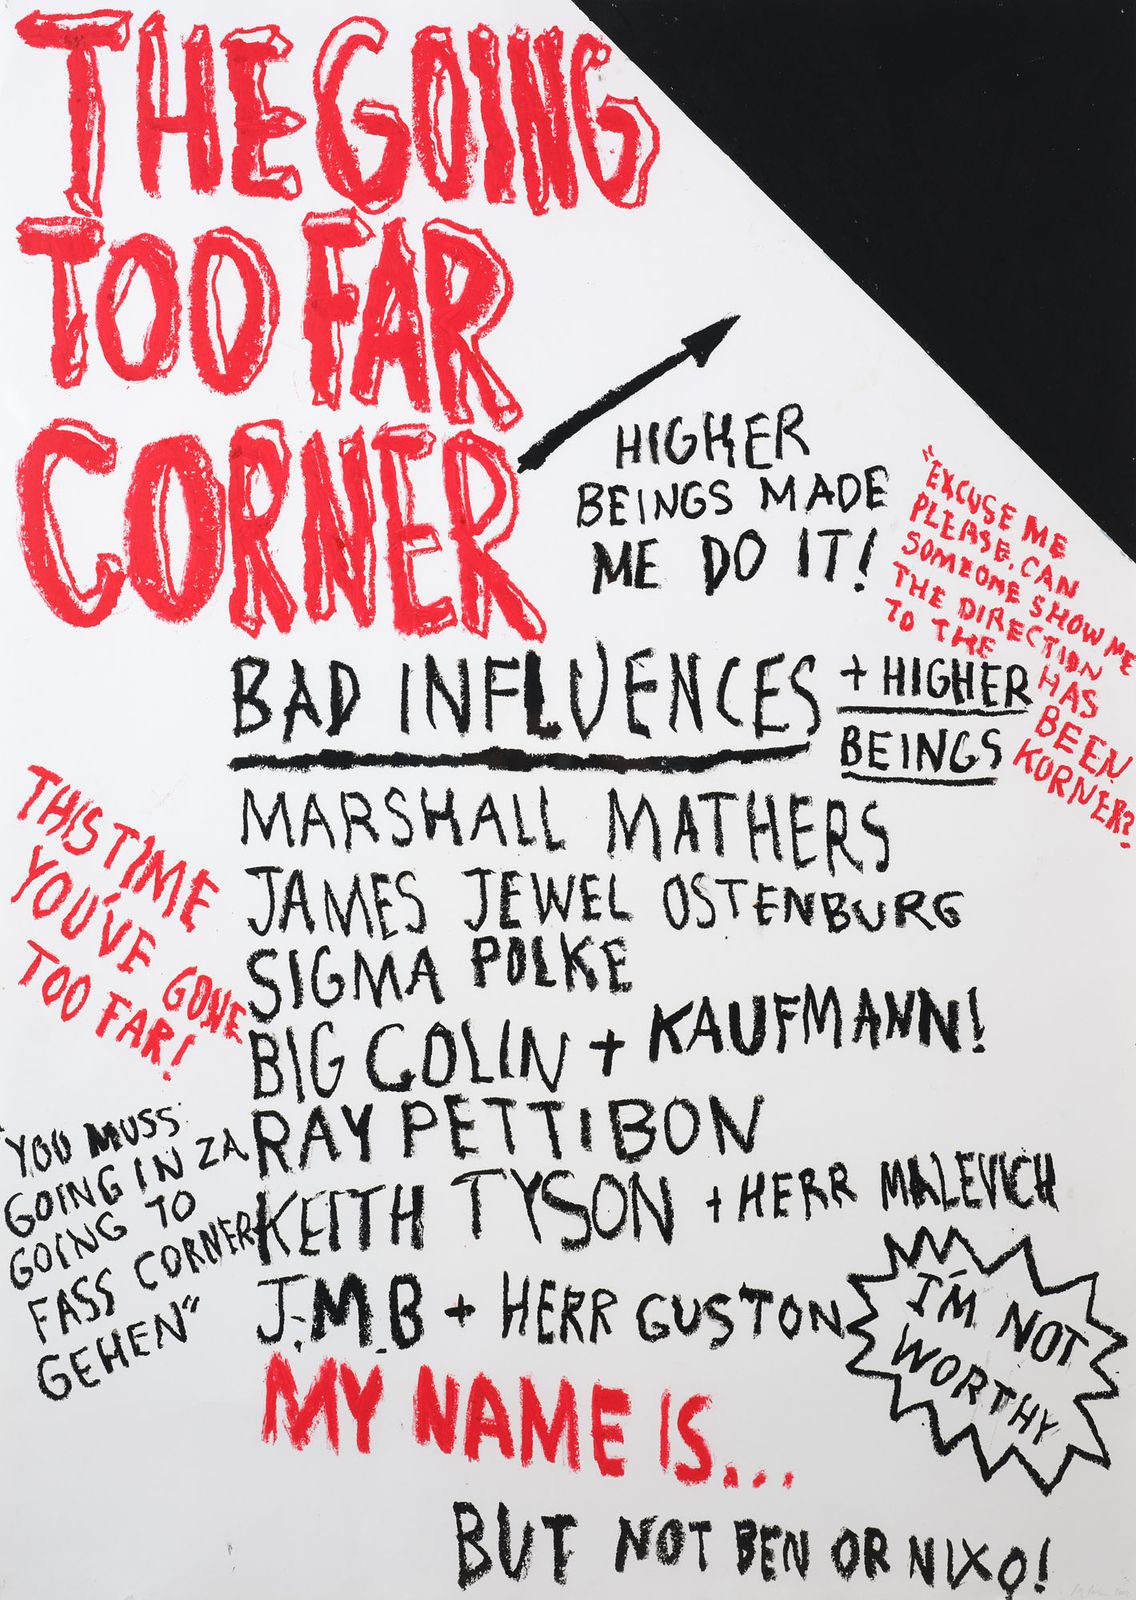 THE GOING
TOO FAR
CORNER
HIGHER
BEINGS MADE
ME DO IT!
"EXCUSE ME
PLEASE, CAN
SOMEONE SHOW ME
THE DIRECTION
TO THE HAS
BEEN
KORNER?
BAD INFLUENCES + HIGHER
BEINGS
MARSHALL MATHERS
JAMES JEWEL OSTENBURG
SIGMA POLKE
BIG COLIN + KAUFMANN!
RAY PETTIBON
KEITH TYSON + HERR MALEVICH
J.M.B + HERR GUSTON
THIS TIME
YOU'VE GONE
TOO FAR!
"YOU MUSS
GOING IN ZA
GOING TO
FASS CORNER
GEHEN"
I'M NOT
WORTHY
MY NAME IS...
BUT NOT BEN OR NIXO!